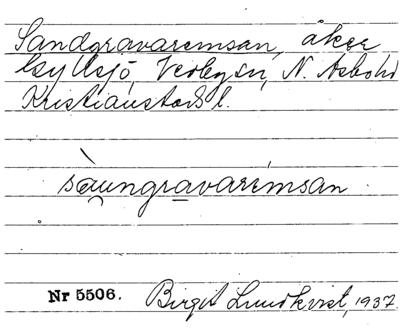 Sandgravaremsan, åker
Gyllsjö, Verbysn, N. Åsbohd
Kristianstads l.
sàungravarémsan
Nr 5506. Birgit Lundkvist, 1937